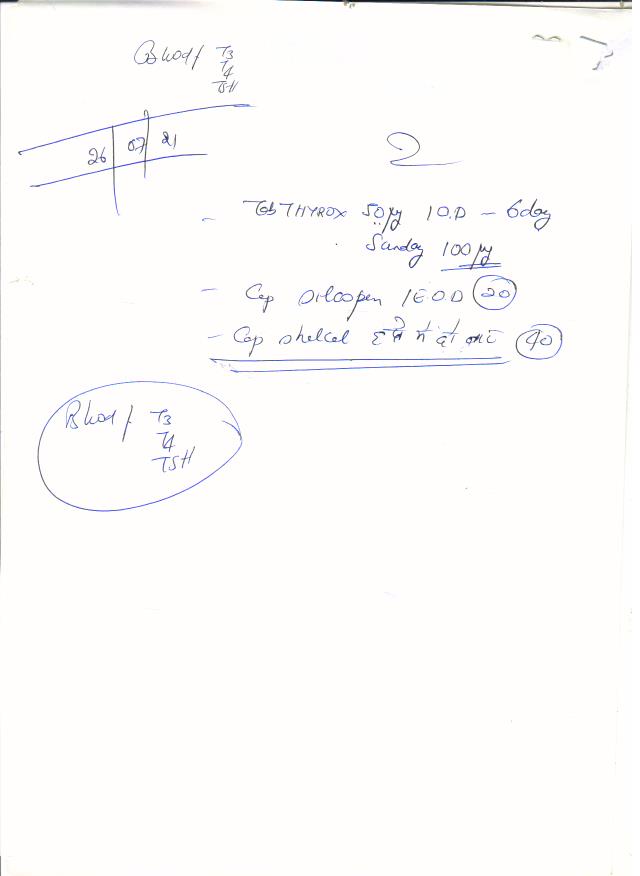 Blood / T3
T4
TSH
26 07 21
2
- Tab THYROX 50 µg 1 O.D - 6 day
Sunday 100 µg
- Cap 1 E.O.D 20
- Cap shelcal 40
Blood / T3
T4
TSH